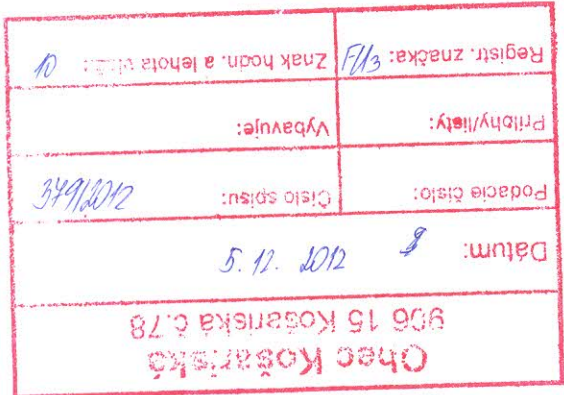 Obec Košariská
906 15 Košariská č.78
Dátum: 5. 12. 2012
Podacie číslo: Číslo spisu: 379/2012
Prílohy/listy: Vybavuje:
Registr. značka: Znak hodn. a lehota 10